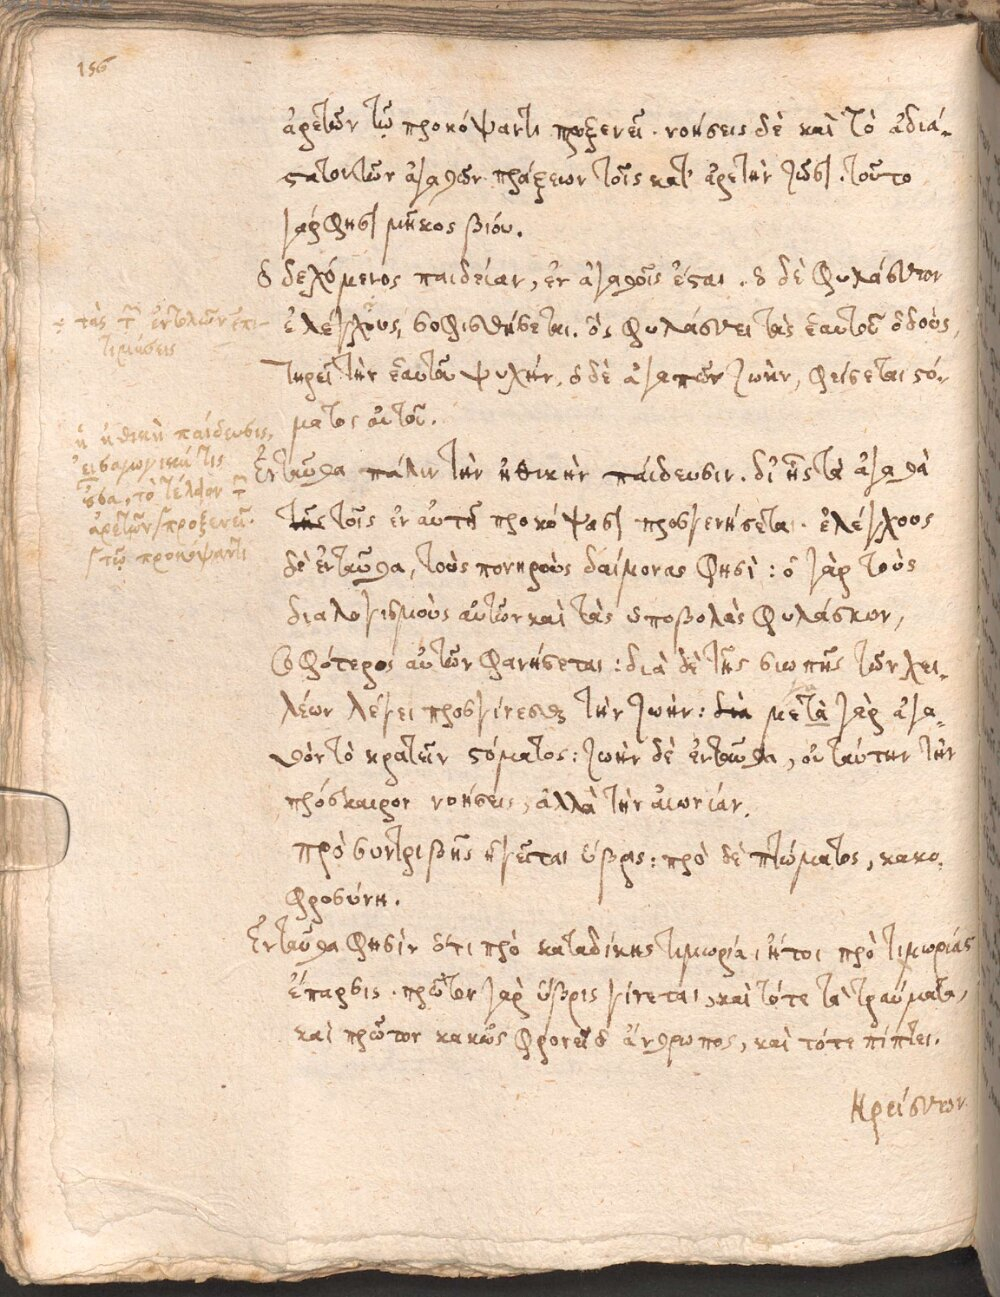 156
ἀρετῶν τῷ προκόψαντι προξενεῖ. νοήσεις δὲ καὶ τὸ ἀδιά-
στατον τῶν ἀγαθῶν πράξεων τοῖς κατ' ἀρετὴν ζῶσι. τοῦτο
γάρ φησι μῆκος βίου.
ὁ δεχόμενος παιδείαν, ἐν ἀγαθοῖς ἔσται. ὁ δὲ φυλάσσων
ἐλέγχους, σοφισθήσεται. ὃς φυλάσσει τὰς ἑαυτοῦ ὁδοὺς,
τηρεῖ τὴν ἑαυτοῦ ψυχήν, ὁ δὲ ἀγαπῶν ζωὴν, φείσεται στό-
ματος αὐτοῦ.
Ἐνταῦθα πάλιν τὴν ἠθικὴν παίδευσιν. δι' ἧς τὰ ἀγαθὰ
τῆς τοῖς ἐν αὐτῇ προκόψασι προσγενήσεται. ἐλέγχους
δὲ ἐνταῦθα, τοὺς πονηροὺς δαίμονας φησὶ: ὁ γὰρ τοὺς
διαλογισμοὺς αὐτῶν καὶ τὰς ὑποβολὰς φυλάσσων,
σοφώτερος αὐτῶν φανήσεται: διὰ δὲ τῆς σιωπῆς τῶν χει-
λέων λέγει προσγίνεσθαι τὴν ζωήν: διὰ μετὰ γὰρ ἀγα-
θὸν τὸ κρατεῖν στόματος: ζωὴν δὲ ἐνταῦθα, οὐ ταύτην τὴν
πρόσκαιρον νοήσεις, ἀλλὰ τὴν αἰωνίαν.
πρὸ συντριβῆς ἡγεῖται ὕβρις: πρὸ δὲ πτώματος, κακο-
φροσύνη.
Ἐνταῦθα φησὶν ὅτι πρὸ καταδίκης τιμωρία, ἤτοι πρὸ τιμωρίας
ἔπαρσις. πρῶτον γὰρ ὕβρις γίνεται, καὶ τότε τὰ τραύματα,
καὶ πρῶτον κακῶς φρονεῖ ὁ ἄνθρωπος, καὶ τότε πίπτει.
κρείσσων
τὰς τῶν ἐντολῶν ἐπι-
τιμήσεις
ἡ ἠθικὴ παίδευσις,
εἰσαγωγική τις
οὖσα, τὸ τέλειον τῶν
ἀρετῶν προξενεῖ.
τῷ προκόψαντι